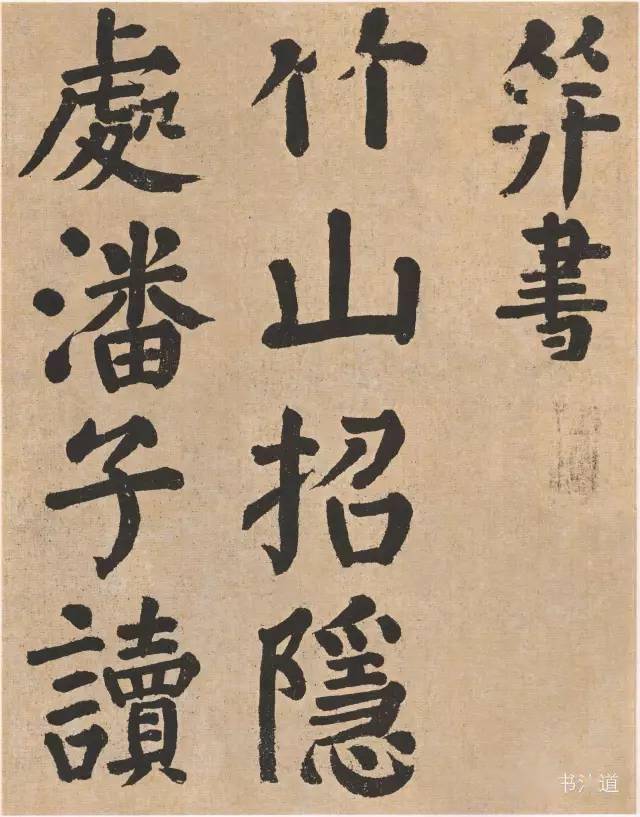 笄書
竹山招隱
處潘子讀
书法道